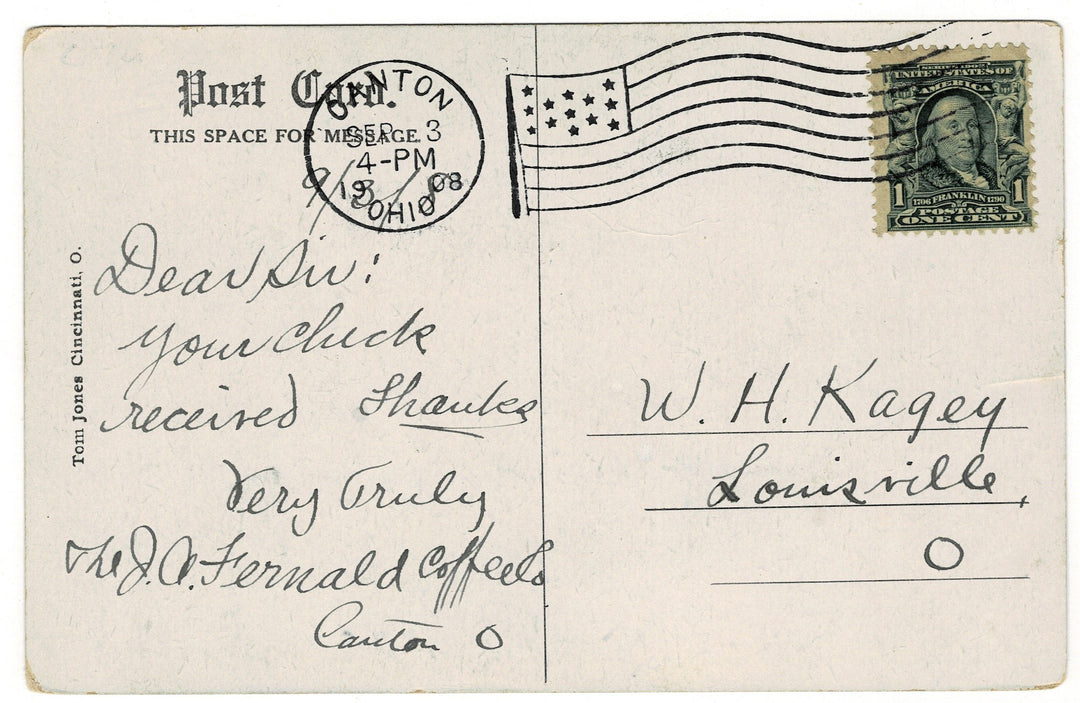 Post Card.
THIS SPACE FOR MESSAGE.
CANTON
SEP 3
4-PM
1908
OHIO
SERIES 1902
UNITED STATES OF
AMERICA
1 1706 FRANKLIN 1790 1
POSTAGE
ONE CENT
9/3/8
Dear Sir:
Your check
received Thanks
Very Truly
The J. A. Fernald Coffee Co
Canton O
Tom Jones Cincinnati, O.
W. H. Kagey
Louisville,
O